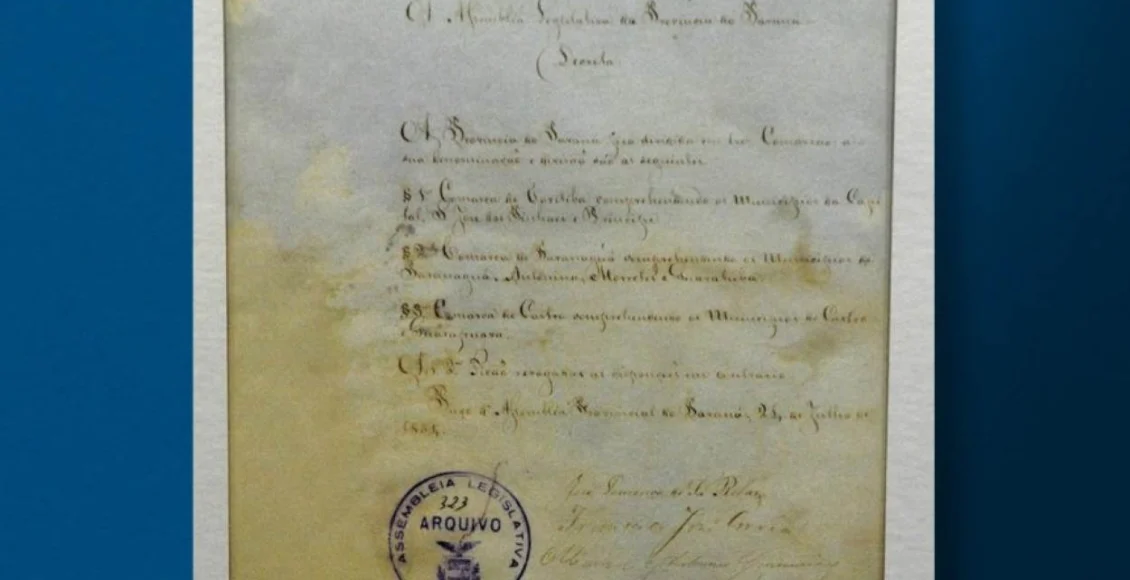 A Assemblea Legislativa da Provincia do Paraná
Decreta
A Provincia do Paraná fica dividida em tres Comarcas, a
sua denominação e divisão são as seguintes
§ 1º Comarca de Coritiba comprehendendo os Municipios da Capi
tal, S. José dos Pinhaes e Principe
§ 2º Comarca de Paranaguá comprehendendo os Municipios de
Paranaguá, Antonina, Morretes e Guaratuba.
§ 3º Comarca de Castro comprehendendo os Municipios de Castro
e Guarapuava.
Art. 2º Ficão revogadas as disposições em contrario
Paço da Assemblea Provincial do Paraná, de Julho de
1854.
José de Sá
Francisco José Correia
Manoel Antonio Guimarães
ASSEMBLEIA LEGISLATIVA
323
ARQUIVO